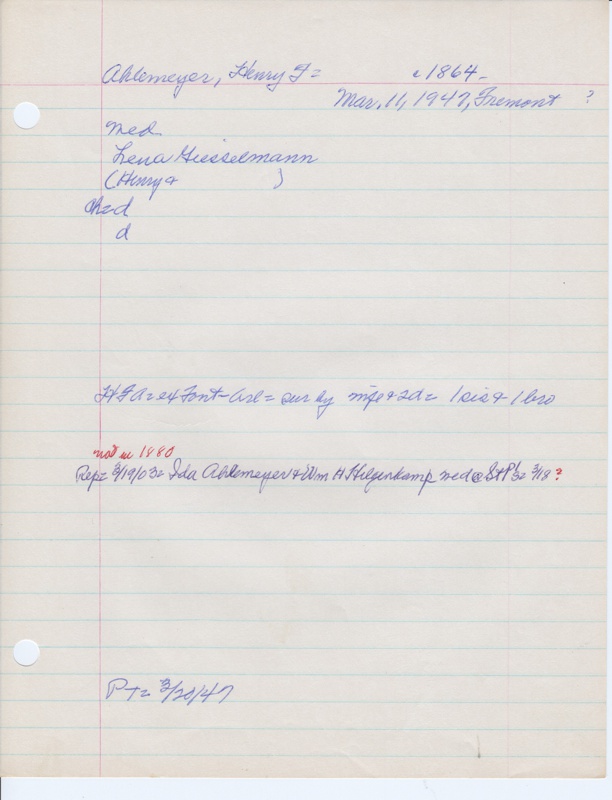 Ahlemeyer, Henry F= c1864-
Mar. 11, 1947, Fremont ?
wed
Lena Giesselmann
(Henry + )
ch=d
d
HFA= ex Font-Arl= sur by wife + 2d= 1 sis + 1 bro
not in 1880
Rep= 3/19/03= Ida Ahlemeyer + Wm H Hilgenkamp wed @ St P's= 3/18 ?
PT= 3/20/47